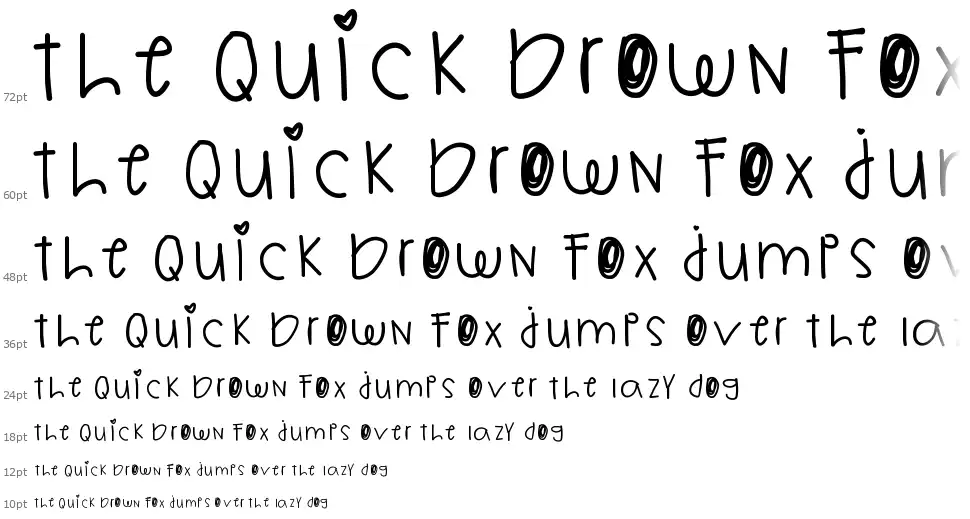 72pt the quick brown fox
60pt the quick brown fox jum
48pt the quick brown fox jumps ov
36pt the quick brown fox jumps over the laz
24pt the quick brown fox jumps over the lazy dog
18pt the quick brown fox jumps over the lazy dog
12pt the quick brown fox jumps over the lazy dog
10pt the quick brown fox jumps over the lazy dog